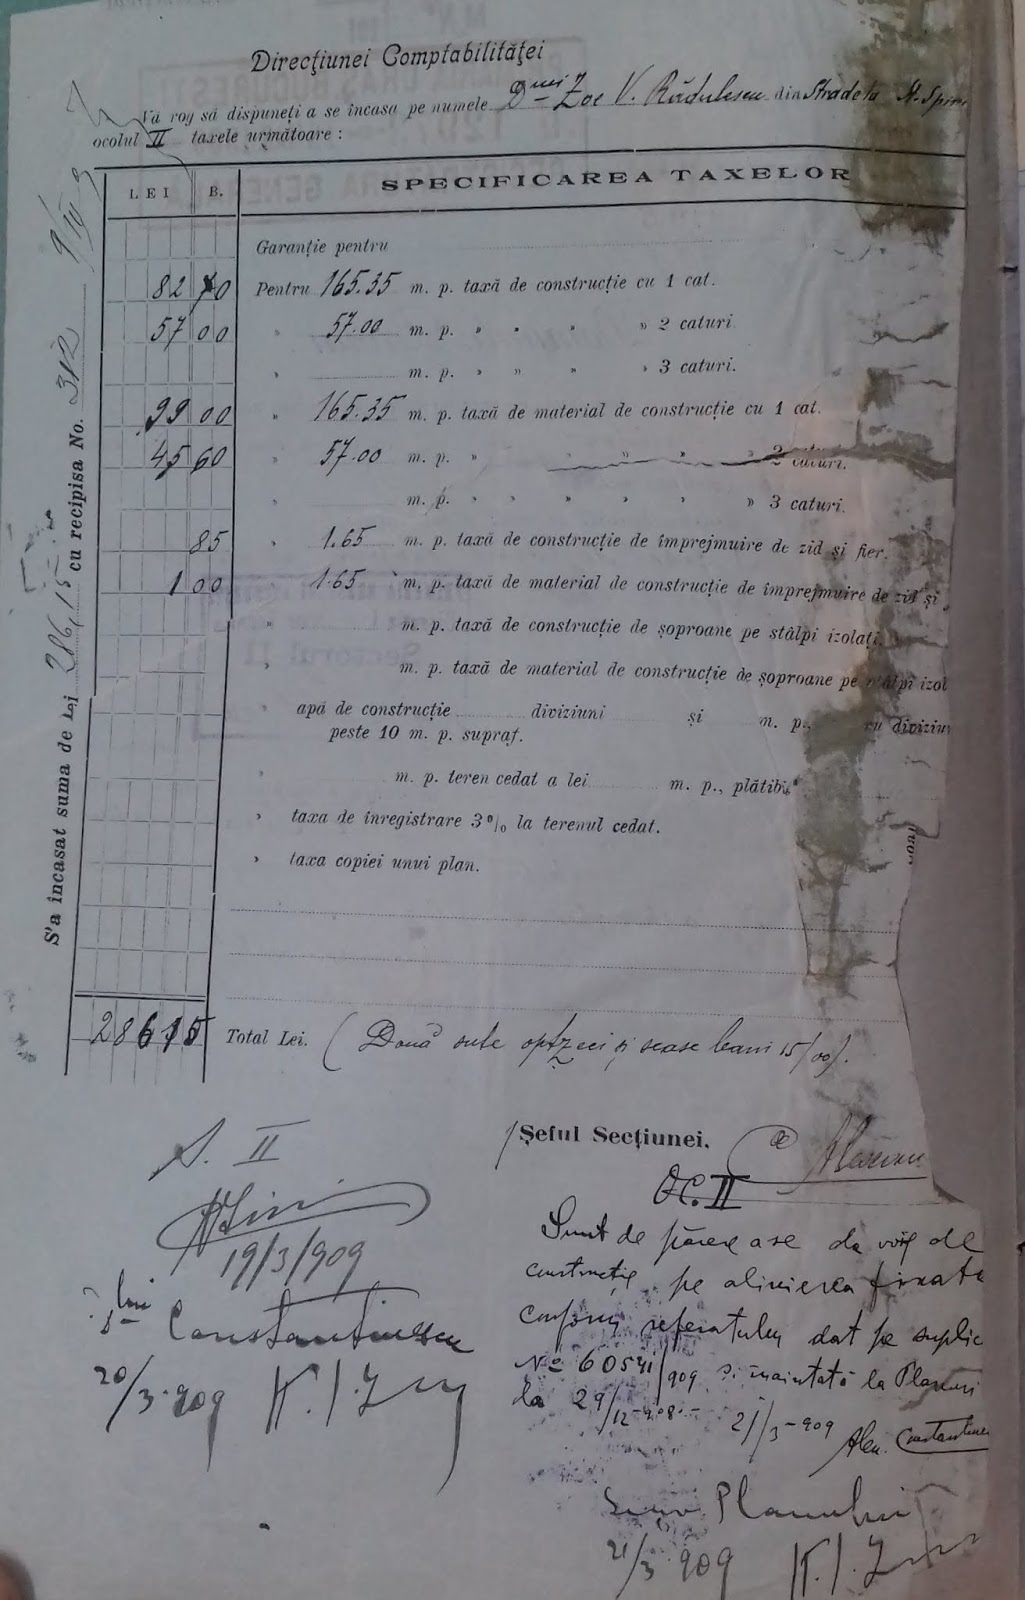 Direcţiunei Comptabilităţei
Vă rog să dispuneţi a se încasa pe numele Dnei Zoe V. Rădulescu din Stradela St. Spiri
ocolul II taxele următoare :
LEI B. SPECIFICAREA TAXELOR
Garanţie pentru
82 70 Pentru 165.35 m. p. taxă de construcţie cu 1 cat.
57 00 » 57.00 m. p. » » » » 2 caturi.
» m. p. » » » » 3 caturi.
99 00 » 165.35 m. p. taxă de material de construcţie cu 1 cat.
45 60 » 57.00 m. p. » » » » 2 caturi.
» m. p. » » » » » 3 caturi.
85 » 1.65 m. p. taxă de construcţie de împrejmuire de zid şi fier.
1 00 1.65 m. p. taxă de material de construcţie de împrejmuire de zid şi
» m. p. taxă de construcţie de şoproane pe stâlpi izolaţi.
» m. p. taxă de material de construcţie de şoproane pe stâlpi izol
» apă de construcţie diviziuni şi m. p., cu diviziun
peste 10 m. p. supraf.
» m. p. teren cedat a lei m. p., plătibil
» taxa de înregistrare 3% la terenul cedat.
» taxa copiei unui plan.
286 15 Total Lei. (Două sute optzeci şi sease bani 15/00).
S'a încasat suma de lei 286,15 cu recipisa No. 312 9/IV 9
Şeful Secţiunei.
S. II
19/3/909
Dlui Constantinescu
20/3 909
OC. II
Sunt de părere a se da voie de
construcţie pe alinierea fixată
conform referatului dat pe suplic
No 60541/909 şi înaintată la Planuri
la 29/12-908.- 21/3-909 Alex. Constantines
Planului
21/3 909